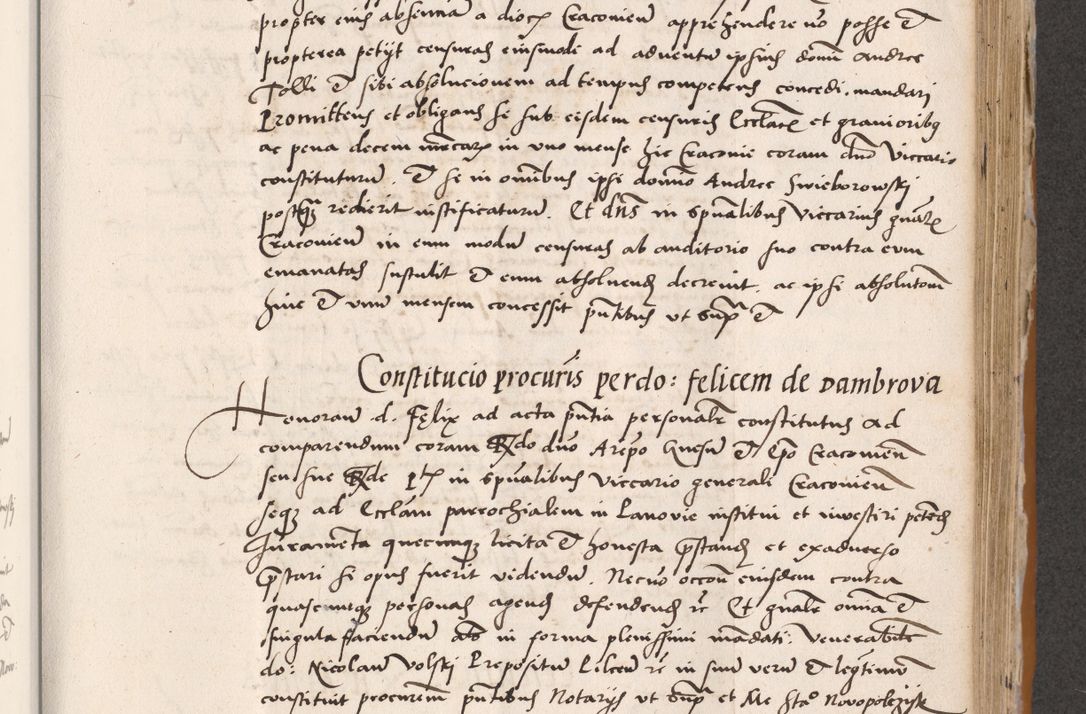 propter eius absentiam a dioc Cracovien apprehendere no posse et
propterea petijt censuras eiusmodi ad adventu ipsius domi Andree
Tolli et sibi absolucionem ad tempus competens concedi, mandari
Promittens et obligans se sub eisdem censuris Ecclae et graviorib9
ac pena decem mrcar in uno mense hic Cracovie coram dno Viccario
constituturu. et se in omnibus ipsi domino Andree Swieborowski
postq redierit iustificaturu. Et dns in spualibus Viccarius gnalis
Cracovien in eum modu censuras ab auditorio suo contra eum
emanatas sustulit et eum absoluend decrevit, ac ipsi absolutom
hinc et unu mensem concessit pntibus ut supra et
Constitucio procuris per do: felicem de Dambrova
Honoran d. Felix ad acta pntia personalr constitutus ad
comparendum coram Rdo dno Arepo Gnesn et Epo Cracovien
seu sue Rde p in spualibus Viccario generali Cracovien
seq ad Ecclam parrochialem in Lanovie institui et investiri petend
Iuramenta quecunq licita et honesta prestand et exadverso
prestari si opus fuerit videndu. Necno occon eiusdem contra
quascunq personas agend defendend rc Et gnalr omia et
singula faciendu als in forma plenissimi mandati: Venerabile
do: Nicolau Volski Prepositu Lilcen rc in suu veru et legtimu
constituit procurem pntibus Notarijs ut supra et Me Sta° Novopolczisk